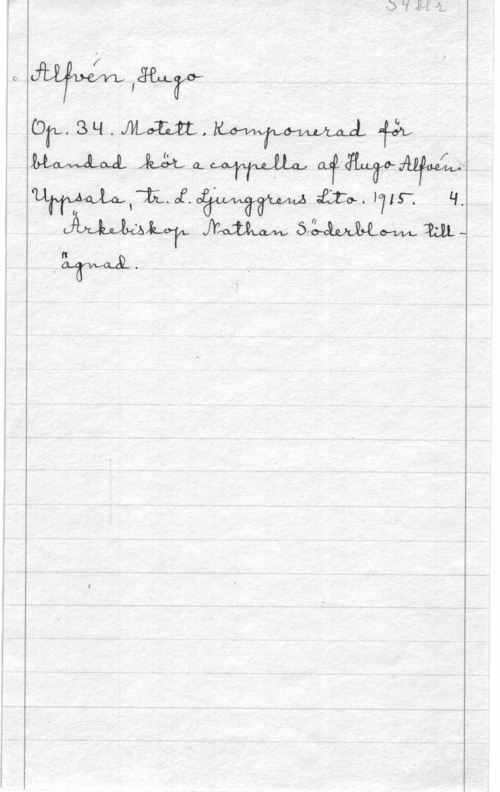 Alfvén, Hugo
Op. 34. Motett. Komponerad för
blandad kör a cappella af Hugo Alfvén.
Uppsala, tr. L. Ljunggrens Lito. 1915. 4.
Ärkebiskop Nathan Söderblom till-
ägnad.